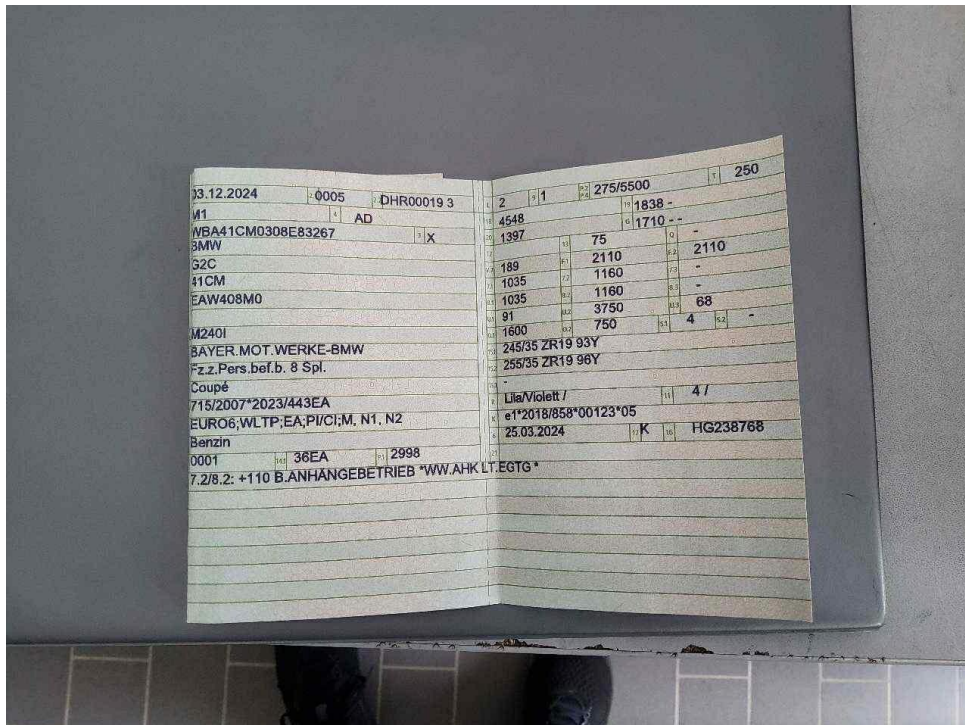 03.12.2024 0005 DHR00019 3
M1 AD
WBA41CM0308E83267 X
BMW
G2C
41CM
EAW408M0
M240I
BAYER.MOT.WERKE-BMW
Fz.z.Pers.bef.b. 8 Spl.
Coupé
715/2007*2023/443EA
EURO6;WLTP;EA;PI/CI;M, N1, N2
Benzin
0001 36EA P.1 2998
7.2/8.2: +110 B.ANHÄNGEBETRIEB *WW.AHK LT.EGTG *
2 9 1 P.2 P.4 275/5500 T 250
18 4548 19 1838 -
20 1397 G 1710 - -
13 75 Q -
189 F.1 2110 F.2 2110
1035 7.2 1160 7.3 -
1035 8.2 1160 8.3 -
91 U.2 3750 U.3 68
1600 O.2 750 S.1 4 S.2 -
245/35 ZR19 93Y
255/35 ZR19 96Y
-
R Lila/Violett / 11 4 /
K e1*2018/858*00123*05
6 25.03.2024 17 K 16 HG238768
21